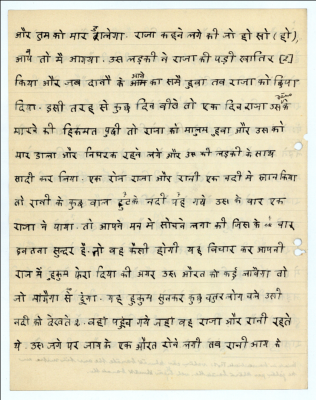 और तुम को मार डालेगा. राजा कहने लगे की जो हो सो (हो),
आप तो मै आगया. उस लड़की ने राजा की बड़ी खातिर [2]
किया और जब दानौ के आने का समै हुवा तब राजा को छिपा
दिया. इसी तरह से कुछ दिन बीते तो एक दिन राजा उसके
मारने की हिकमत पुछी तो राजा को मालुम हुवा और उस को
मार डाला और निधरक रहने लगे और उस की लड़की के साथ
सादी कर लिया. एक रोज राजा और रानी एक नदी मे स्नान किया
तो रानी के कुछ बाल टुटके नदी में बह गये उस के बार एक
राजा ने पाया. तो आपने मन मे सोचने लगा की जिस के बार
इतना सुन्दर है. तो वह कैसी होगी यह बिचार कर आपनी
राज में हुकुम फेरा दिया की अगर उस औरत को कई लावेगा तो
जो माँगैगा सो दूंगा. यह हुकुम सुनकर कुछ चतुर लोग चले उसी
नदी को देखते 2. वहां पहुंच गये जहां वह राजा और रानी रहते
थे. उस जगे पर जाय के एक औरत रोने लगी तब रानी आग के